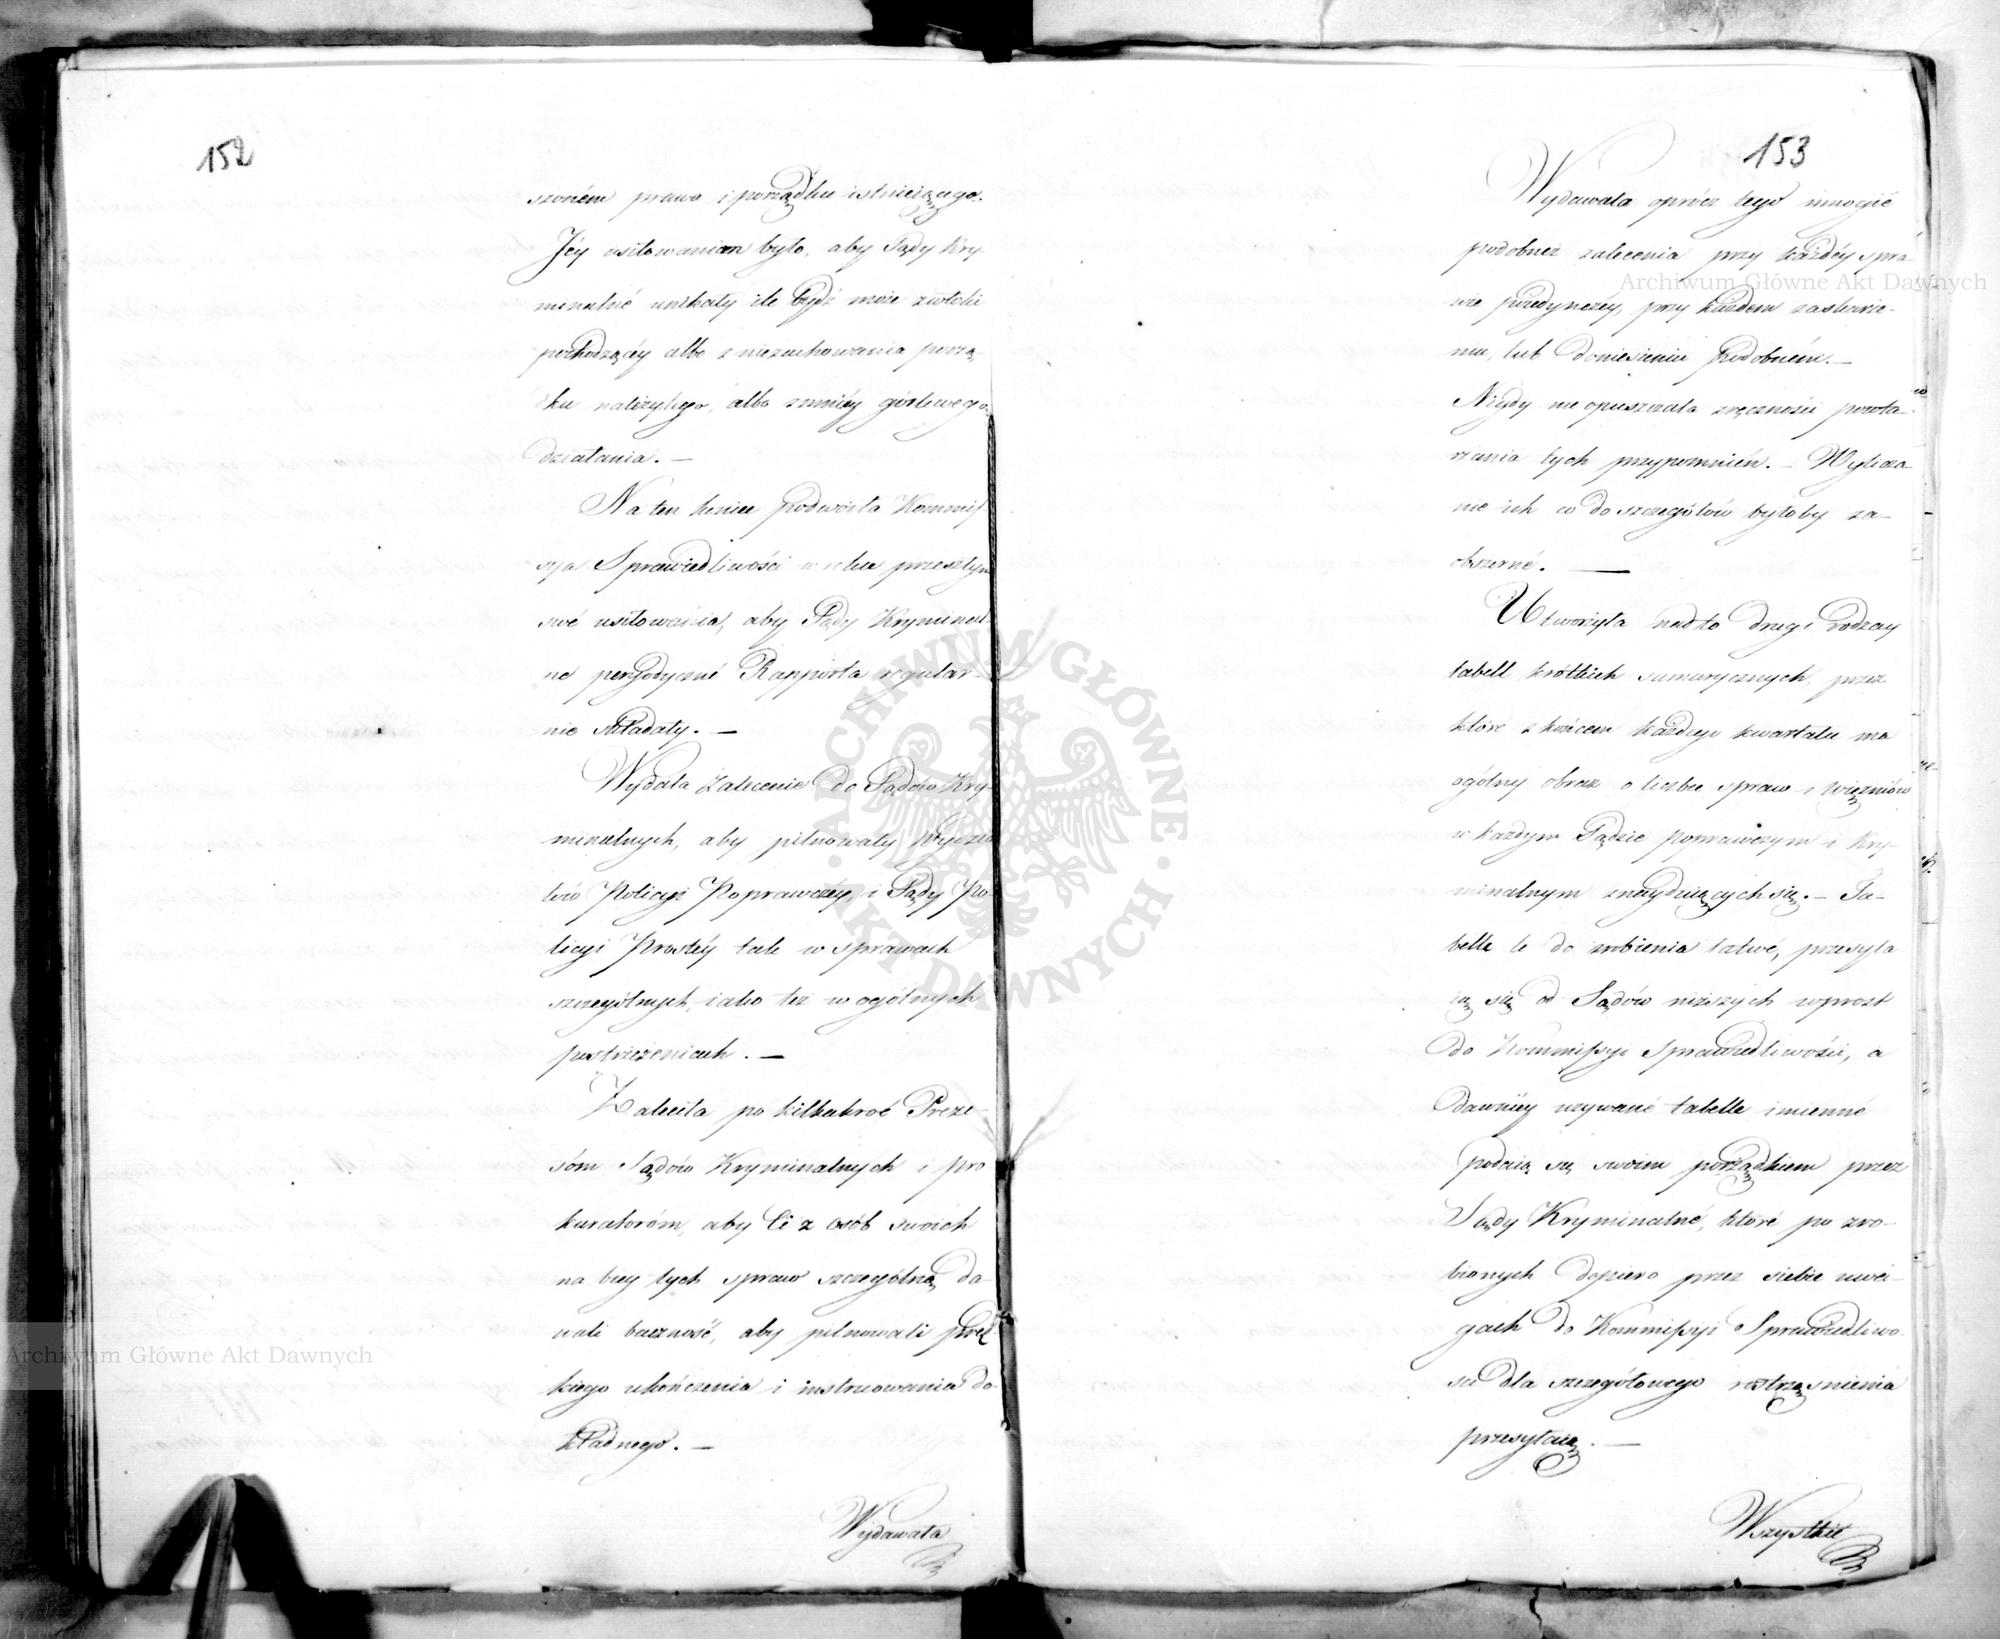 152
szoném prawa i porządku istnieiącego.
Jéy usiłowaniem było, aby Sądy Kry-
minalné unikały ile bydź może zwłoki
pochodzącéy albo z niezachowania porzą-
dku należytego, albo z mniéy gorliwego
działania. —
Na ten koniec podwoiła Kommis-
sya Sprawiedliwości w roku przeszłym
swé usiłowania, aby Sądy Kryminal-
ne peryodyczné Rapporta regular-
nie składały. —
Wydała zalecenie do Sądów Kry-
minalnych, aby pilnowały Wydzia-
łów Policyi Poprawczéy, i Sądy Po-
licyi Prostéy tak w sprawach
szczególnych, iako też w ogólnych
postrzeżeniach. —
Zaleciła po kilkakroć Preze-
sóm Sądów Kryminalnych i pro
kuratoróm, aby Ci z osób swoich
na bieg tych spraw szczególną da-
wali baczność, aby pilnowali pręd-
kiego ukończenia i instruowania do-
kładnego. —
Wydawała
153
Wydawała oprócz tego mnogié
podobnéż zalecenia przy każdéy spra-
wie poiedynczey, przy każdem zaskarże-
niu, lub doniesieniu podobném. —
Nigdy nie opuszczała zręczności powta-
rzania tych przypomnień. — Wylicza-
nie ich co do szczegółów byłoby za-
obszerné. —
Utworzyła nadto drugi rodzay
tabell krótkich sumarycznych, przez
które z końcem każdego kwartału ma
ogólny obraz o liczbie spraw i więzniów
w każdym Sądzie poprawczym i Kry-
minalnym znaydziących się. — Ta-
belle te do zrobienia łatwé, przesyła
ią się od Sądów niższych wprost
do Kommissyi Sprawiedliwości, a
dawniéy używané tabelle imienné
podaią się swoim porządkiem przez
Sądy Kryminalné, któré po zro-
bionych dopiero przez siebie uwa-
gach do Kommissyi Sprawiedliwo-
ści dla szczegółowego roztrząsnienia
przesyłaią. —
Wszystkie
Archiwum Główne Akt Dawnych
Archiwum Główne Akt Dawnych
ARCHIWUM GŁÓWNE · AKT DAWNYCH ·